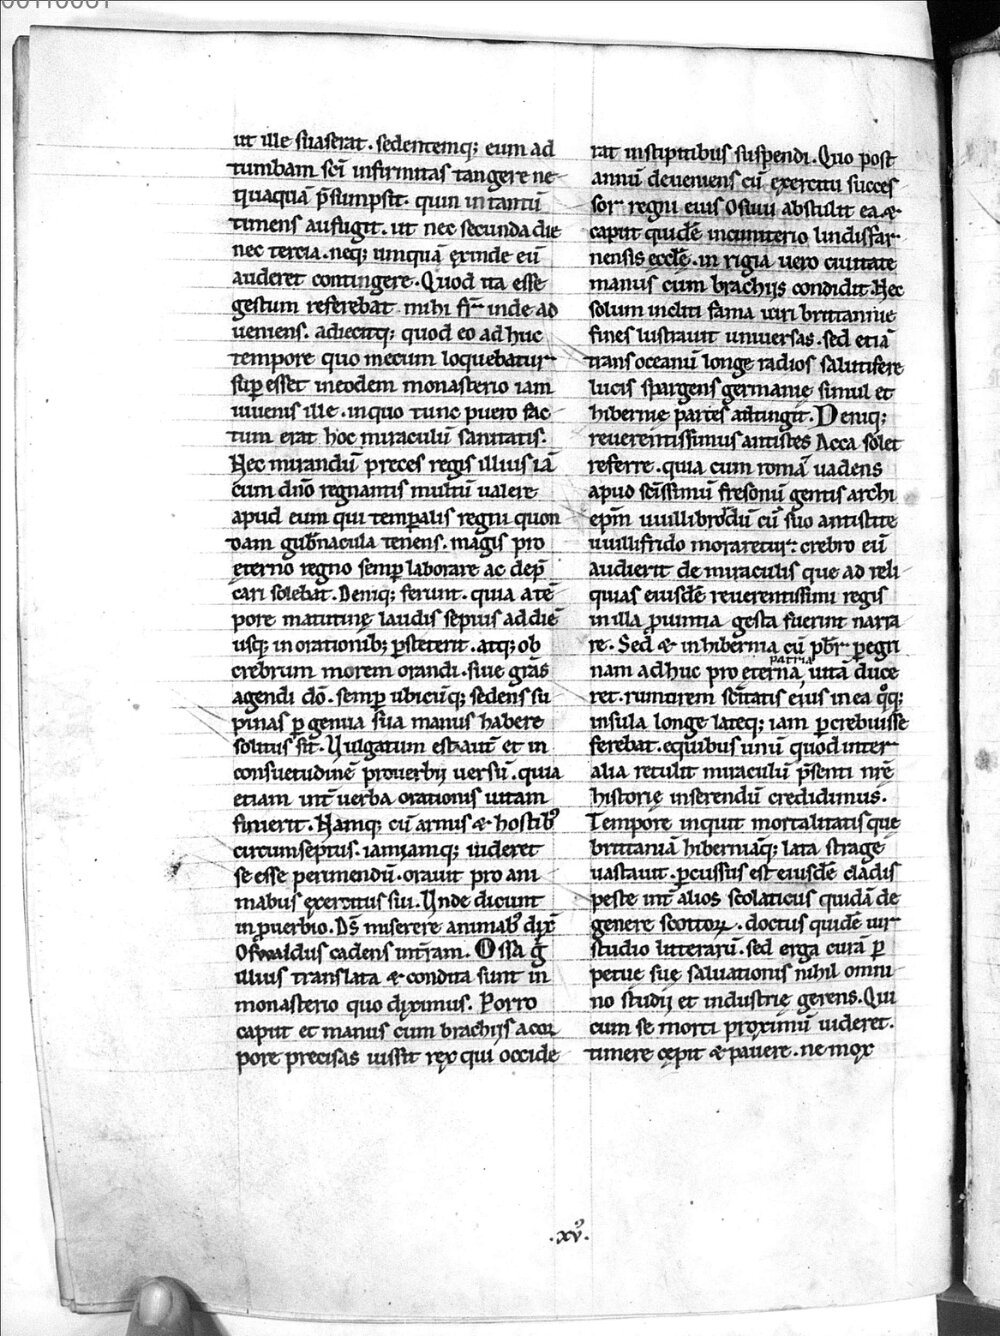 00110081
ut ille suaserat. sedentemq; eum ad
tumbam sc̄i infirmitas tangere ne
quaquā p̄sumpsit. quin in tantū
timens aufugit. ut nec secunda die
nec tercia. neq; umquā exinde eū
auderet contingere. Quod ita esse
gestum referebat mihi fr̄ inde ad
ueniens. adiecitq; quod eo adhuc
tempore quo mecum loquebatur
sup̄esset in eodem monasterio iam
iuuenis ille. in quo tunc puero fac
tum erat hoc miraculū sanitatis.
Nec mirandū preces regis illius iā
cum dn̄o regnantis multū ualere
apud eum qui temp̄alis regni quon
dam gub̄nacula tenens. magis pro
eterno regno semp̄ laborare ac dep̄
cari solebat. Deniq; ferunt. quia a tē
pore matutinę laudis sepius ad diē
usq; in orationib; p̄stetent. atq; ob
crebrum morem orandi. siue grās
agendi dō. semp̄ ubicūq; sedens su
pinas p̄ genua sua manus habere
solitus sit. Vulgatum est autē et in
consuetudinē prouerbij uersū. quia
etiam int̄ uerba orationis uitam
finierit. Namq; cū armis & hostib᷒
circumseptus. iamiamq; uideret
se esse perimendū. orauit pro ani
mabus exercitus sui. Unde dicunt
in puerbio. Ds̄ miserere animab᷒ dix̄
Oswaldus cadens in t̄ram. Ossa ḡ
illius translata & condita sunt in
monasterio quo diximus. Porro
caput et manus cum brachijs a corꝝ
pore precisas iussit rex qui occide
rat in stipitibus suspendi. Quo post
annū deueniens cū exercitu succes
sor regni eius Osuiu abstulit ea. &
caput quidē in cimiterio lindisfar
nensis ecclę. in rigia uero ciuitate
manus cum brachijs condidit. Nec
solum incliti fama uiri brittannię
fines lustrauit uniuersas. sed etiā
trans oceanū longe radios salutifere
lucis spargens germanię simul et
hibernię partes attingit. Deniq;
reuerentissimus antistes Acca solet
referre. quia cum romā uadens
apud sc̄issimū fresonū gentis archi
ep̄m uuillibrordū cū suo antistite
uuilfrido moraretur. crebro eū
audierit de miraculis que ad reli
quias eiusdē reuerentissimi regis
in illa puintia gesta fuerint narra
re. Sed & in hibernia cū pb̄r peregri
patria
nam adhuc pro eterna, uitā duce
ret. rumorem sc̄itatis eius in ea qͦq;
insula longe lateq; iam p̄crebuisse
ferebat. e quibus unū quod inter
alia retulit miraculū p̄senti nr̄ę
historię inserendū credidimus.
Tempore inquit mortalitatis que
brittaniā hiberniāq; lata strage
uastauit. p̄cussus est eiusdē cladis
peste int̄ alios scolaticus quidā de
genere scottoꝝ. doctus quidē uir
studio litterarū. sed erga curā p̄
petue suę saluationis nihil omni
no studij et industrię gerens. Qui
cum se morti proximū uideret.
timere cępit & pauere. ne mox
.xv᷒.